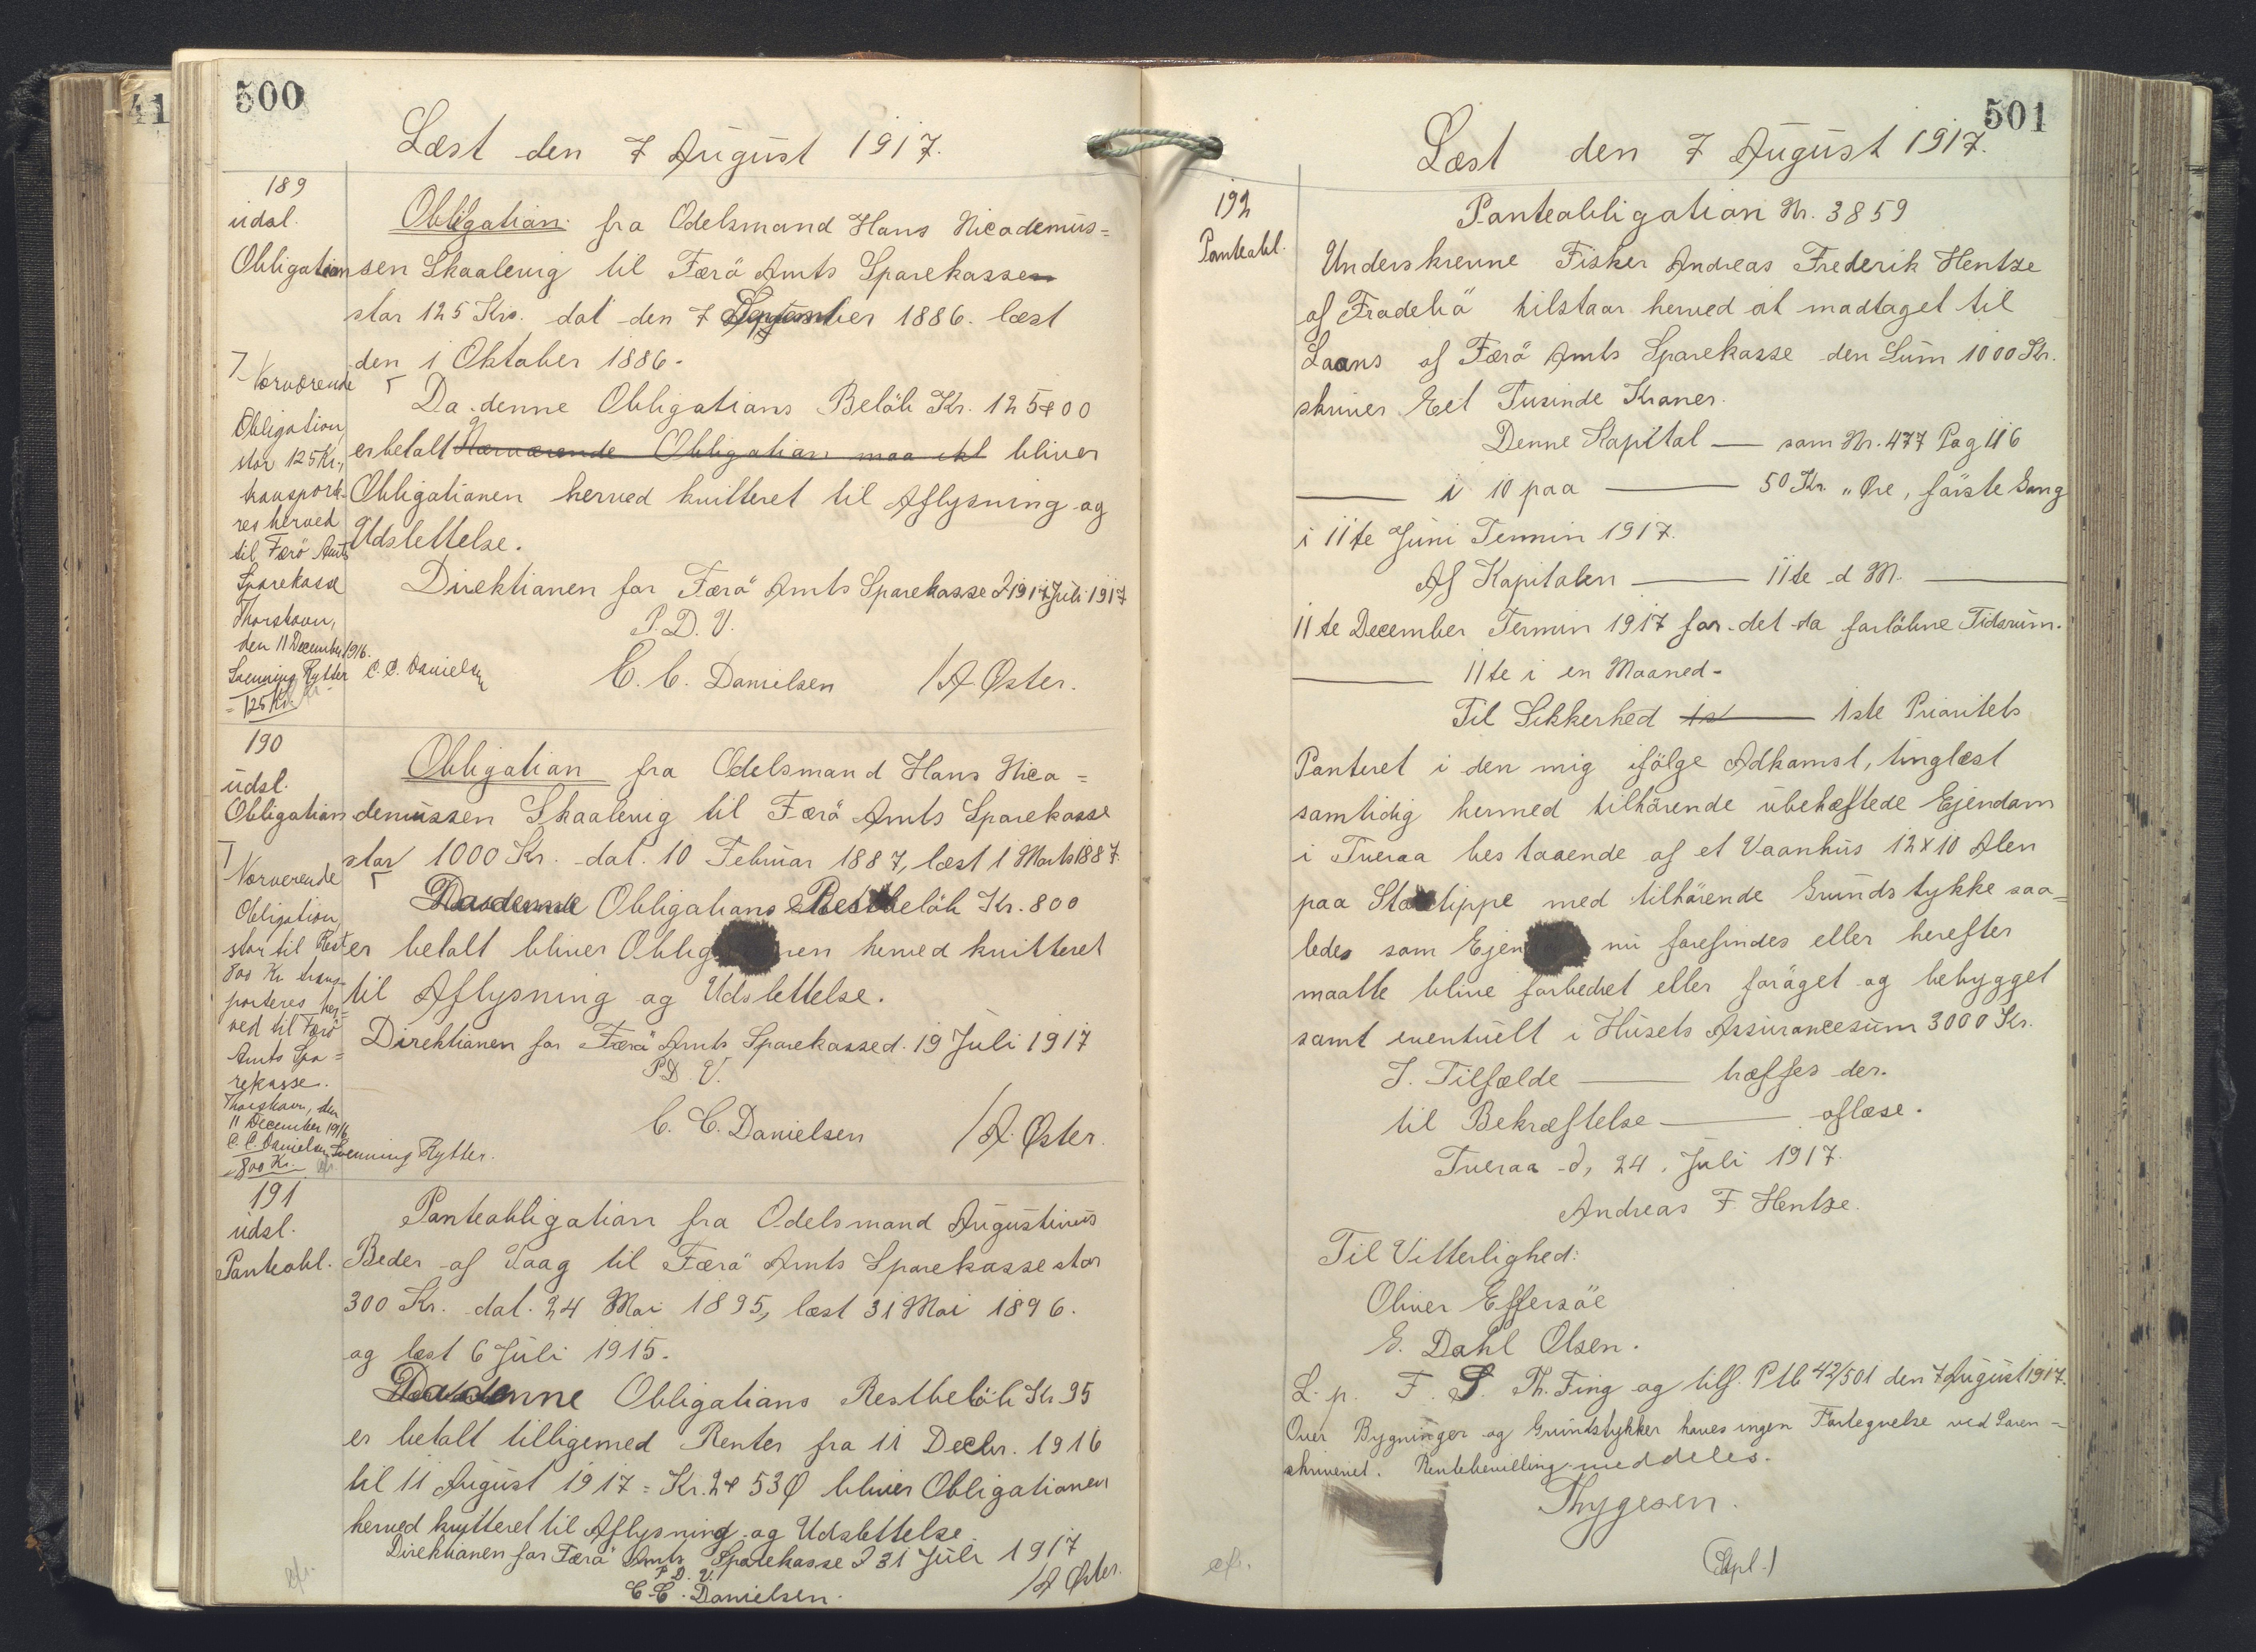 41
500
Læst den 7 August 1917.
189
udsl.
Obligation
Obligation fra Odelsmand Hans Nicodemus=
sen Skaalevig til Færö Amts Sparekasse
stor 125 Kro. dat den 7 September 1886. læst
den 1 Oktober 1886.
Da denne Obligations Belöb Kr. 125 00
er betalt Nærværende Obligation maa bliver
Obligationen herved kvitteret til Aflysning og
Udslettelse.
Direktionen for Færö Amts Sparekasse d 19 Juli 1917
P. D. V.
C. C. Danielsen /A Øster.
Nærværende
Obligation,
stor 125 Kr.,
transporte-
res herved
til Færö Amts
Sparekasse
Thorshavn,
den 11 December 1916.
Svenning Rytter C. C. Danielsen
= 125 Kr.
190
udsl.
Obligation
Obligation fra Odelsmand Hans Nico=
demussen Skaalevig til Færö Amts Sparekasse
stor 1000 Kr. dat. 10 Februar 1887, læst 1 Marts 1887.
Da denne Obligations Restbelöb Kr. 800
er betalt bliver Oblig nen herved kvitteret
til Aflysning og Udslettelse.
Direktionen for Færö Amts Sparekasse d. 19 Juli 1917
P D. V.
C. C. Danielsen /A. Øster.
Nærværende
Obligation,
stor til Rest
800 Kr trans-
porteres her=
ved til Færö
Amts Spa=
rekasse.
Thorshavn, den
11 December 1916
C. C. Danielsen Svenning Rytter.
= 800 Kr.
191
udsl.
Panteobl.
Panteobligation fra Odelsmand Augustinus
Beder af Vaag til Færö Amts Sparekasse stor
300 Kr. dat. 24 Mai 1895, læst 31 Mai 1896.
og læst 6 Juli 1915.
Da denne Obligations Restbelöb Kr 95
er betalt tilligemed Renter fra 11 Decbr. 1916
til 11 August 1917 = Kr. 2 53 Ø bliver Obligationen
herved kvitteret til Aflysning og Udslettelse
Direktionen for Færö Amts Sparekasse d 31 Juli 1917
P D. V.
C. C. Danielsen. /A Øster.
501
Læst den 7 August 1917.
192
Panteobl.
Panteobligation Nr. 3859
Underskrevne Fisker Andreas Frederik Hentze
af Frodebö tilstaar herved at modtaget til
Laans af Færö Amts Sparekasse den Sum 1000 Kr.
skriver Eet Tusinde Kroner.
Denne Kapital — som Nr. 477 Pag 116
— i 10 paa — 50 Kr. " Øre, förste Gang
i 11te Juni Termin 1917.
Af Kapitalen — 11te d M. —
11te December Termin 1917 for det da forlöbne Tidsrum.
— 11te i en Maaned.
Til Sikkerhed — 1ste Prioritets
Panteret i den mig ifölge Adkomst, tinglæst
samtidig hermed tilhörende ubehæftede Ejendom
i Tveraa bestaaende af et Vaanhus 12 x 10 Alen
paa med tilhörende Grundstykke saa=
ledes som Ejen nu forefindes eller herefter
maatte blive forbedret eller foröget og bebygget
samt eventuelt i Husets Assurancesum 3000 Kr.
I Tilfælde — træffes der.
til Bekræftelse — oflæse.
Tveraa d, 24, Juli 1917.
Andreas F. Hentze.
Til Vitterlighed:
Oliver Effersöe
E. Dahl Olsen.
L. p. F. S. Th. Ting og tilf. Ptb 42/501 den 7 August 1917.
Over Bygninger og Grundstykker haves ingen Fortegnelse ved Soren=
skriveriet. Rentebevilling meddeles.
Thygesen.
(Stpl.)